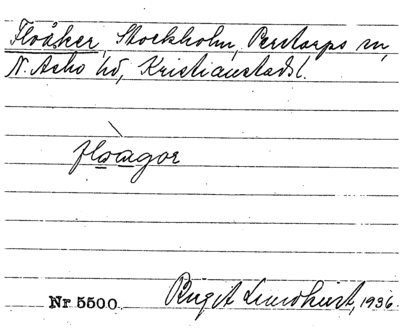 Floåker, Stockholm, Perstorps sn,
N. Asbo hd, Kristianstads l.
floagor
Nr 5500. Birgit Lundhust, 1936.